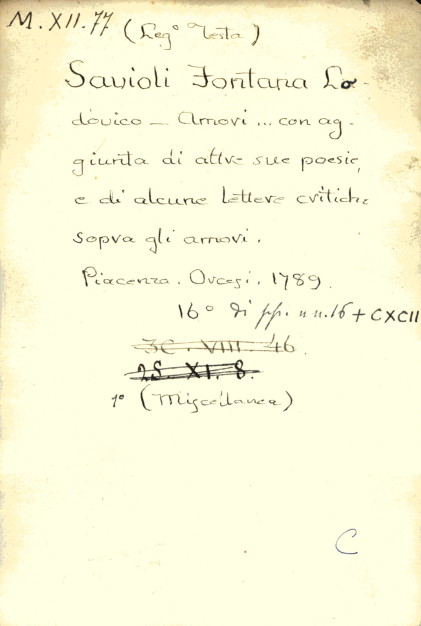 M. XII. 77 (Leg° Testa)
Savioli Fontana Lo-
dovico – Amori ... con ag-
giunta di altre sue poesie,
e di alcune lettere critiche
sopra gli amori.
Piacenza. Orcesi. 1789.
16° di pp. n n. 16 + CXCII
3C. VIII. 46
2S. XI. 8.
1° (Miscellanea)
C